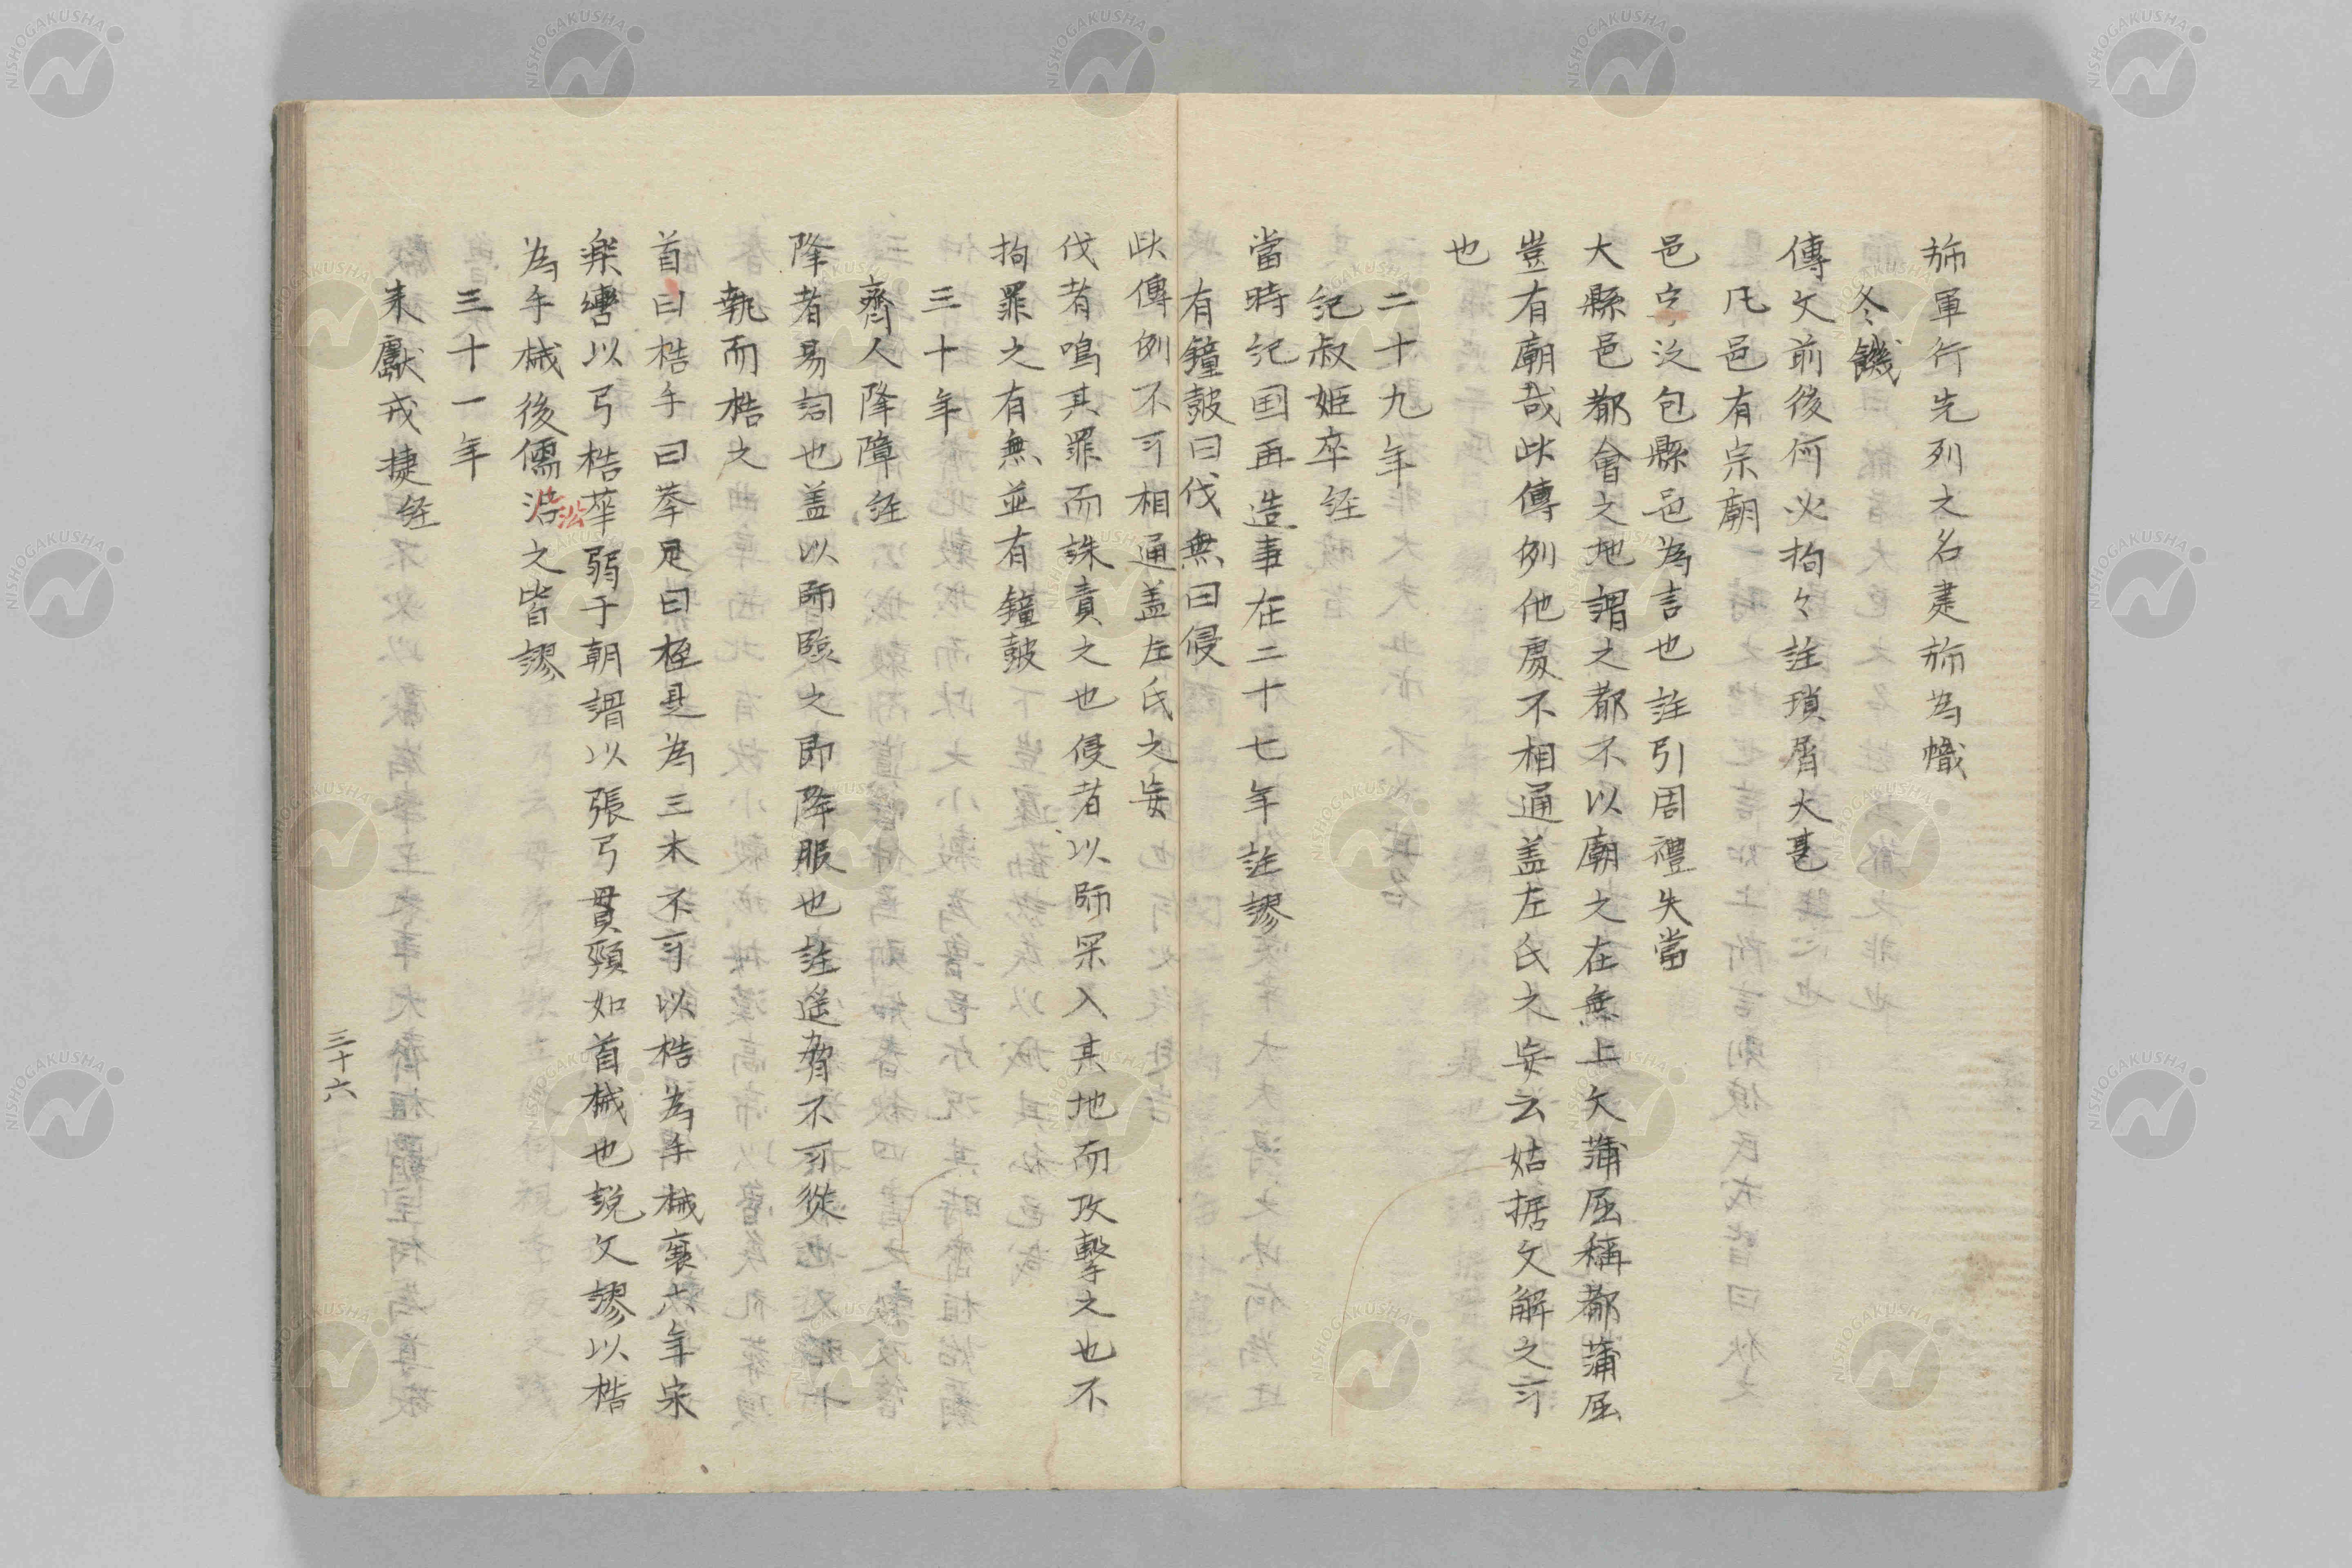 旆軍行先列之名建旆為幟
冬饑
傳文前後何必拘々註瑣屑大甚
凡邑有宗廟
邑字汎包縣邑為言也註引周禮失當
大縣邑都會之地謂之都不以廟之在無上文蒲屈稱都蒲屈
豈有廟哉此傳例他處不相通盖左氏之妄云姑据文解之可
也
二十九年
紀叔姬卒経
當時紀国再造事在二十七年註謬
有鐘鼓曰伐無曰侵
此傳例不可相通盖左氏之妄
伐者鳴其罪而誅責之也侵者以師罙入其地而攻擊之也不
拘罪之有無並有鐘鼓
三十年
齊人降障経
降者易詞也盖以師臨之即降服也註遥脅不可從
執而梏之
首曰梏手曰拲足曰桎是為三木不可以梏為手械襄六年宋
樂轡以弓梏華弱于朝謂以張弓貫頸如首械也説文謬以梏
為手械後儒沿之皆謬
三十一年
来獻戎捷経
三十六
NISHOGAKUSHA